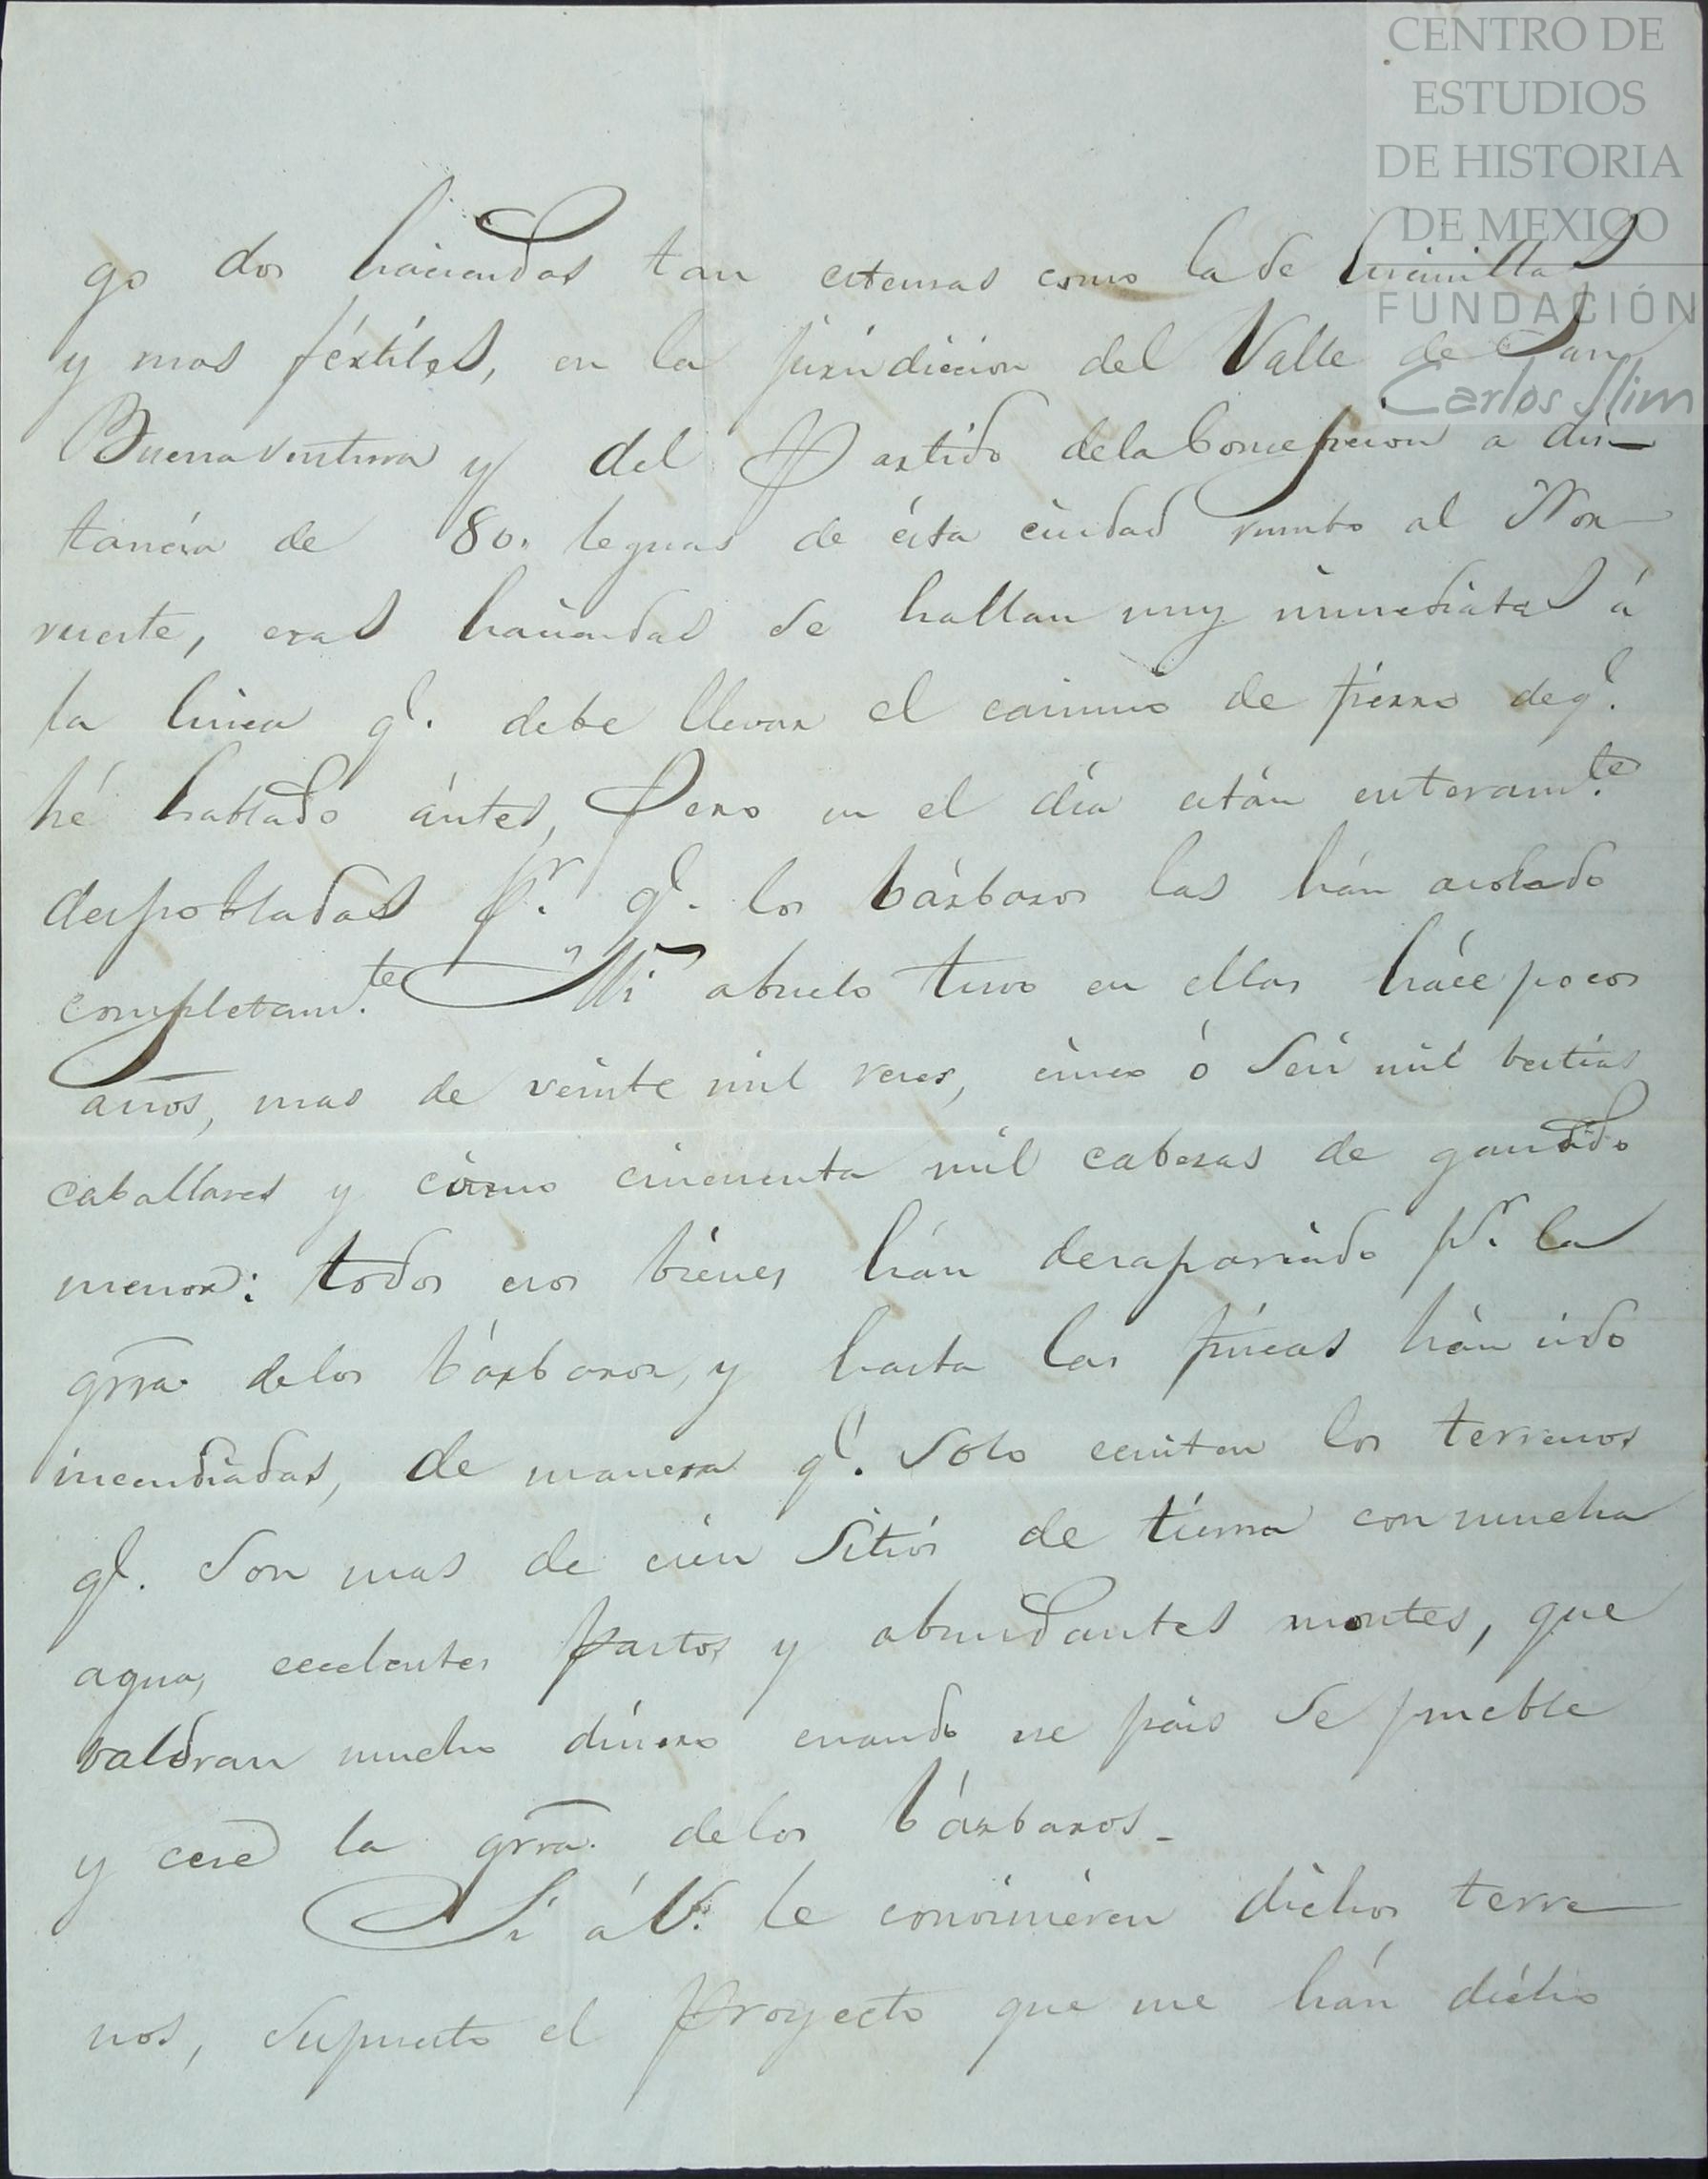 CENTRO DE
ESTUDIOS
DE HISTORIA
DE MEXICO
FUNDACIÓN
Carlos Slim
go dos haciendas tan estensas como la de Encinillas
y mas fértiles, en la jurisdiccion del Valle de San
Buenaventura y del Partido dela Concepcion a dis-
tancia de 80. leguas de ésta ciudad rumbo al Nor
rueste, esas haciendas se hallan muy inmediatas á
la linea q.e debe llevar el camino de fierro deq.e
hé hablado ántes, Pero en el día están enteram.te
despobladas p.r q.e los bárbaros las hán asolado
completam.te Mi abuelo tuvo en ellas háce pocos
años, mas de veinte mil reses, cinco ó seis mil bestias
caballares y cómo cincuenta mil cabezas de ganado
menor: todos esos biénes hán desaparecido p.r la
grra. delos bárbaros, y hasta las fincas hán sido
incendiadas, de manera q.e solo ecsiten los terrenos
q.e son mas de cien sitiós de tierra con mucha
agua, ecselentes pastos y abundantes montes, que
valdran mucho dinero cuando ese país se pueble
y cese la grra. delos bárbaros.
Si á V. le convinieren dichos terre
nos, supuesto el proyecto que me hán dicho